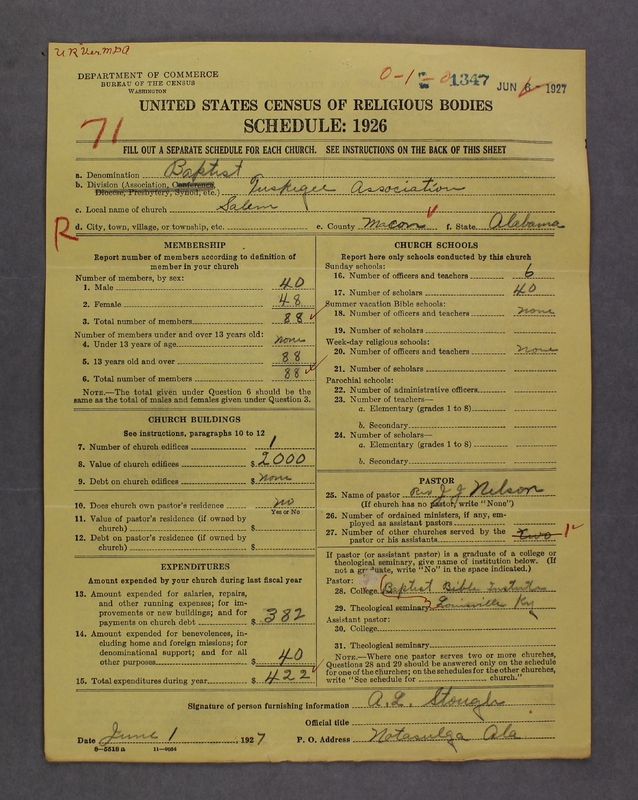 U.R.Ver.M.D.A
DEPARTMENT OF COMMERCE
BUREAU OF THE CENSUS
WASHINGTON
0-1- 1347 JUN 6 1927
UNITED STATES CENSUS OF RELIGIOUS BODIES
71
SCHEDULE: 1926
FILL OUT A SEPARATE SCHEDULE FOR EACH CHURCH. SEE INSTRUCTIONS ON THE BACK OF THIS SHEET
a. Denomination Baptist
b. Division (Association, Conference,
Diocese, Presbytery, Synod, etc.) Tuskegee Association
c. Local name of church Salem
R d. City, town, village, or township, etc. e. County Macon f. State Alabama
MEMBERSHIP
Report number of members according to definition of
member in your church
Number of members, by sex:
1. Male 40
2. Female 48
3. Total number of members 88
Number of members under and over 13 years old:
4. Under 13 years of age none
5. 13 years old and over 88
6. Total number of members 88
NOTE.—The total given under Question 6 should be the
same as the total of males and females given under Question 3.
CHURCH BUILDINGS
See instructions, paragraphs 10 to 12
7. Number of church edifices 1
8. Value of church edifices $2000
9. Debt on church edifices $none
10. Does church own pastor's residence no
Yes or No
11. Value of pastor's residence (if owned by
church) $
12. Debt on pastor's residence (if owned by
church) $
EXPENDITURES
Amount expended by your church during last fiscal year
13. Amount expended for salaries, repairs,
and other running expenses; for im-
provements or new buildings; and for
payments on church debt $ 382
14. Amount expended for benevolences, in-
cluding home and foreign missions; for
denominational support; and for all
other purposes $ 40
15. Total expenditures during year $422
CHURCH SCHOOLS
Report here only schools conducted by this church
Sunday schools:
16. Number of officers and teachers 6
17. Number of scholars 40
Summer vacation Bible schools:
18. Number of officers and teachers none
19. Number of scholars
Week-day religious schools:
20. Number of officers and teachers none
21. Number of scholars
Parochial schools:
22. Number of administrative officers
23. Number of teachers—
a. Elementary (grades 1 to 8)
b. Secondary
24. Number of scholars—
a. Elementary (grades 1 to 8)
b. Secondary
PASTOR
25. Name of pastor Rev J J Nelson
(If church has no pastor, write "None")
26. Number of ordained ministers, if any, em-
ployed as assistant pastors
27. Number of other churches served by the
pastor or his assistants two 1
If pastor (or assistant pastor) is a graduate of a college or
theological seminary, give name of institution below. (If
not a graduate, write "No" in the space indicated.)
Pastor:
28. College Baptist Bible Institute
29. Theological seminary Louisville Ky
Assistant pastor:
30. College
31. Theological seminary
NOTE.—Where one pastor serves two or more churches,
Questions 28 and 29 should be answered only on the schedule
for one of the churches; on the schedules for the other churches,
write "See schedule for church."
Signature of person furnishing information A. L. Stough
Official title
Date June 1, 1927 P. O. Address Notasulga Ala
8-5518a 11-9054